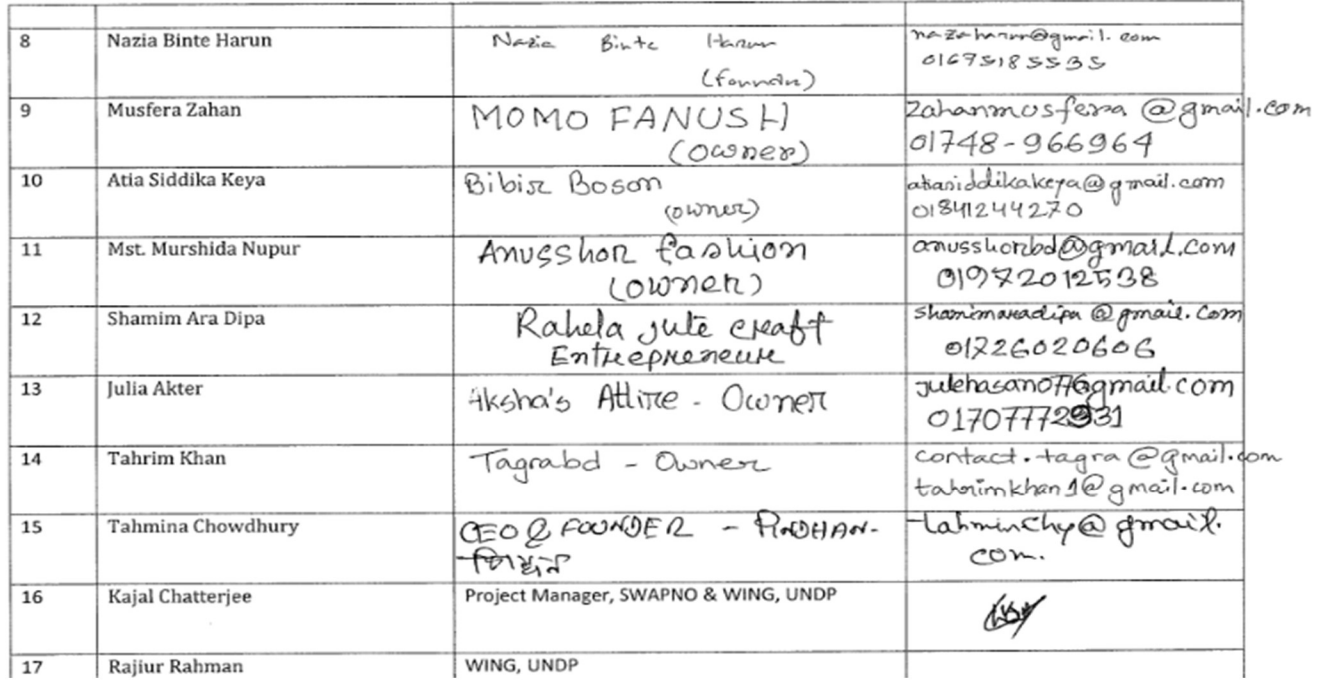 8 Nazia Binte Harun Nazia Binte Harun nazaharun@gmail.com
01675185535
(founder)
9 Musfera Zahan MOMO FANUSH zahanmusfera@gmail.com
(owner) 01748-966964
10 Atia Siddika Keya Bibir Boson atiasiddikakeya@gmail.com
(owner) 01841244270
11 Mst. Murshida Nupur Anusshor fashion anusshorbd@gmail.com
(owner) 01972012538
12 Shamim Ara Dipa Rahela jute craft shamimaradipa@gmail.com
Entrepreneur 01726020606
13 Julia Akter Aksha's Attire - Owner julehasan077@gmail.com
01707772931
14 Tahrim Khan Tagrabd - Owner contact.tagra@gmail.com
tahrimkhan1@gmail.com
15 Tahmina Chowdhury CEO & FOUNDER - PINDHAN- tahminchy@gmail.
পিন্ধন com.
16 Kajal Chatterjee Project Manager, SWAPNO & WING, UNDP
17 Rajiur Rahman WING, UNDP